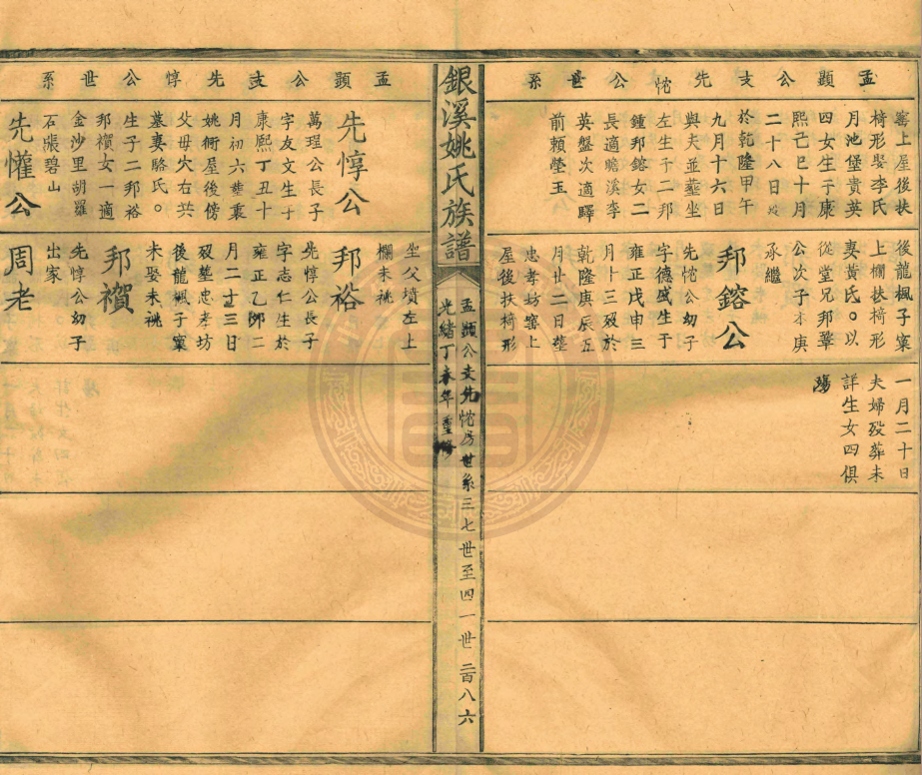 孟顥公支先㤞公世系
窰上屋後扶
椅形娶李氏
月池堡貴英
四女生于康
熙己巳十月
二十八日
於乾隆甲午
九月十六日
與夫並塟坐
左生子二邦
鍾邦鎔女二
長適瞻溪李
英盤次適驛
前賴瑩玉
後龍楓子窠
上欄扶椅形
娶黃氏○以
從堂兄邦
公次子才庚
承繼
邦鎔公
先㤞公幼子
字德盛生于
雍正戊申三
月十三歿於
乾隆庚辰五
月廿二日塟
忠孝坊窰上
屋後扶椅形
一月二十日
夫婦歿葬未
詳生女四俱
殤
銀溪姚氏族譜
孟顥公支先㤞房世系三七世至四一世 二百八六
光緒丁未年重修
孟顥公支先惇公世系
先惇公
萬理公長子
字友文生于
康熙丁丑十
月初六塟裏
姚衙屋後傍
父母穴右共
墓妻駱氏。
生子二邦裕
邦襸女一適
金沙里胡羅
石張碧山
先懽公
坐父墳左上
欄未祧
邦裕
先惇公長子
字志仁生於
雍正乙卯二
月二十三日
歿塟忠孝坊
後龍楓子窠
未娶未祧
邦襸
先惇公幼子
出家
周老